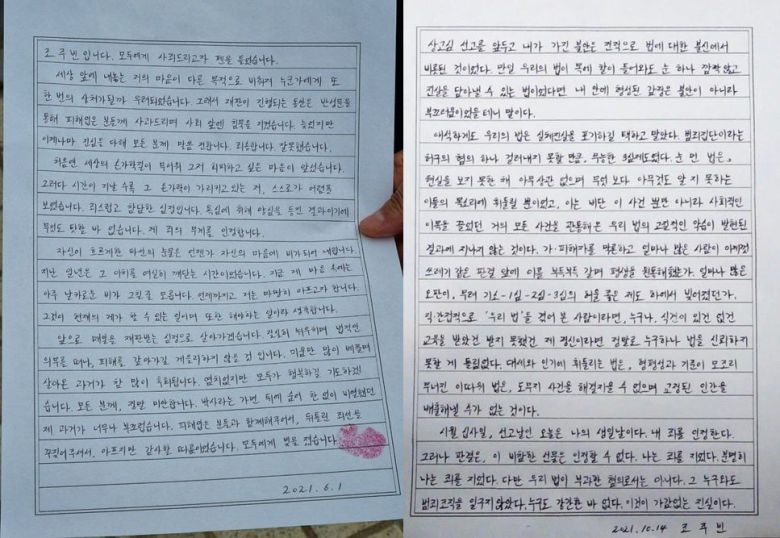 조주빈입니다. 모두에게 사죄드리고자 펜을 들었습니다.
세상 앞에 내놓는 저의 마음이 다른 목적으로 비춰져 누군가에게 또
한 번의 상처가 될까 우려되었습니다. 그래서 재판이 진행되는 동안은 반성문을
통해 피해입은 분들께 사과드리며 사회 앞에 침묵을 지켰습니다. 늦었지만
이제나마 진심을 다해 모든 분께 말씀 전합니다. 죄송합니다. 잘못했습니다.
처음엔, 세상의 손가락질이 무서워 그저 회피하고 싶은 마음이 앞섰습니다.
그러다 시간이 지날 수록 그 손가락이 가리키고있는 저, 스스로가 어떤지
보였습니다. 죄스럽고 참담한 심정입니다. 욕심에 취해 양심을 등진 결과이기에
무엇도 탓할 바 없습니다. 제 죄의 무게를 인정합니다.
자신이 흐르게한 타인의 눈물은 언젠가 자신의 마음에 비가되어 내립니다.
지난 일년은 그 이치를 여실히 깨닫는 시간이었습니다. 지금 제 마음 속에는
아주 날카로운 비가 그칠 줄 모릅니다. 언제까지고 저는 마땅히 아프고자 합니다.
그것이 현재의 제가 할 수 있는 일이며 또한 해야하는 일이라 생각합니다.
앞으로 매일을 재판받는 심정으로 살아가겠습니다. 성실히 뉘우치며 법적인
의무를 떠나, 피해를 갚아가길 게을리하지 않을 것 입니다. 미움만 많이 베풀며
살아온 과거가 참 많이 후회됩니다. 염치없지만 모두가 행복하길 기도하겠
습니다. 모든 분께, 정말 미안합니다. 박사라는 가면 뒤에 숨어 한 없이 비열했던
제 과거가 너무나 부끄럽습니다. 피해입은 분들과 함께해주어서, 뒤틀린 죄인을
꾸짖어주셔서, 아프지만 감사할 따름이었습니다. 모두에게 빚을 졌습니다.
2021. 6. 1
상고심 선고를 앞두고 내가 가진 불안은 전적으로 법에 대한 불신에서
비롯된 것이었다. 만일 우리의 법이 목에 칼이 들어와도 눈 하나 깜짝 않고
진실을 담아낼 수 있는 법이었다면 내 안에 형성된 감정은 불안이 아니라
부끄러움이었을 테니 말이다.
애석하게도 우리의 법은 실체진실을 포기하길 택하고 말았다. 범죄집단이라는
허구의 혐의 하나 걸러내지 못할 만큼, 무능한 3심제도였다. 눈 먼 법은,
현실을 보지 못한 채 아무상관 없으며 무엇 보다 아무것도 알 지 못하는
이들의 목소리에 휘둘릴 뿐이었고, 이는 비단 이 사건 뿐만 아니라 사회적인
이목을 끌었던 거의 모든 사건을 관통해온 우리 법의 고질적인 악습이 발현된
결과에 지나지 않은 것이다. 가·피해자를 막론하고 얼마나 많은 사람이 이제껏
쓰레기 같은 판결 앞에 이를 부득부득 갈며 평생을 원통해했는가. 얼마나 많은
오판이, 무려 기소-1심-2심-3심의 허울 좋은 제도 하에서 빚어졌던가.
직·간접적으로 '우리 법'을 겪어 본 사람이라면, 누구나, 식견이 있건 없건
교육을 받았건 받지 못했건 제 정신이라면 정말로, 누구하나 법을 신뢰하지
못할 게 틀림없다. 대세와 인기에 휘둘리는 법은, 형평성과 기준이 모조리
무너진 이따위 법은, 도무지 사건을 해결지을 수 없으며 교정된 인간을
배출해낼 수가 없는 것이다.
시월 십사일, 선고날인 오늘은 나의 생일날이다. 내 죄를 인정한다.
그러나 판결은, 이 비참한 선물은 인정할 수 없다. 나는 죄를 지었다. 분명히
나는 죄를 지었다. 다만 우리 법이 부과한 혐의로서는 아니다. 그 누구와도
범죄조직을 일구지 않았다. 누구도 강간한 바 없다. 이것이 가감없는 진실이다.
2021. 10. 14 조 주 빈